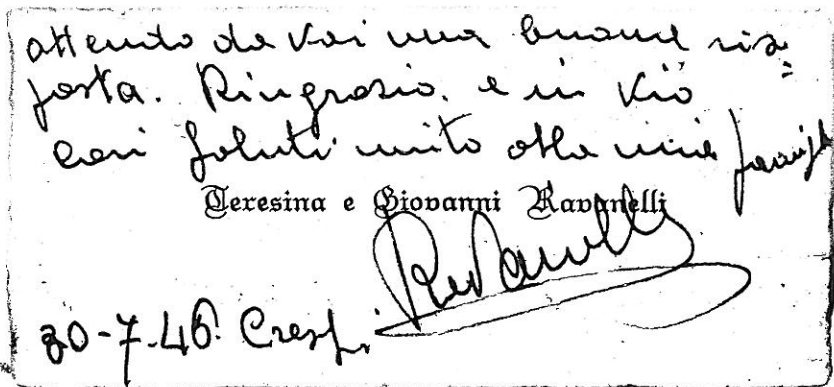 attendo da Voi una buona ris=
posta. Ringrazio. e in vio
cari saluti unito alla mia famiglia
Teresina e Giovanni Ravanelli
Ravanelli
30-7-46. Crespi